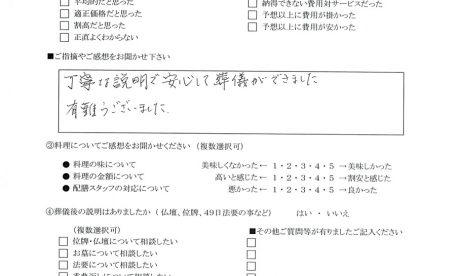 □ 平均的だと思った
□ 適正価格だと思った
□ 割高だと思った
□ 正直よくわからない
□ 納得できない費用対サービスだった
□ 予想以上に費用が掛かった
□ 予想以上に費用が安かった
■ご指摘やご感想をお聞かせ下さい
丁寧な説明で安心して葬儀ができました
有難うございました.
③料理についてご感想をお聞かせください（複数選択可）
● 料理の味について 美味しくなかった← 1・2・3・4・5 →美味しかった
● 料理の金額について 高いと感じた← 1・2・3・4・5 →割安と感じた
● 配膳スタッフの対応について 悪かった← 1・2・3・4・5 →良かった
④葬儀後の説明はありましたか（仏壇、位牌、49日法要の事など） はい ・ いいえ
（複数選択可）
□ 位牌・仏壇について相談したい
□ お墓について相談したい
□ 法要について相談したい
■その他ご質問等が有りましたご記入ください